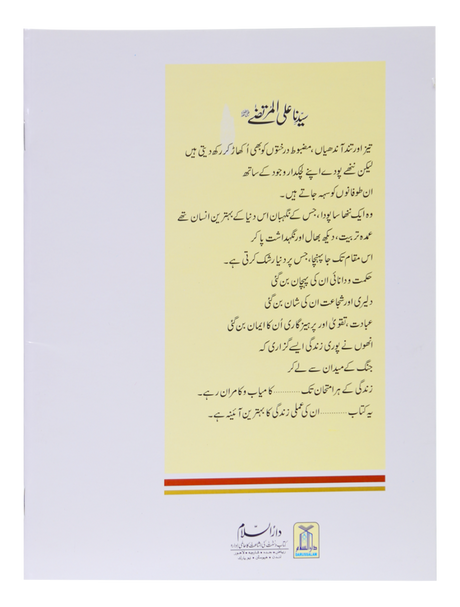 سیّدنا علی المرتضےٰ
تیز اور تند آندھیاں، مضبوط درختوں کو بھی اُکھاڑ کر رکھ دیتی ہیں
لیکن ننھے پودے اپنے لچکدار وجود کے ساتھ
ان طوفانوں کو سہہ جاتے ہیں۔
وہ ایک ننھا سا پودا، جس کے نگہبان اس دنیا کے بہترین انسان تھے
عمدہ تربیت، دیکھ بھال اور نگہداشت پا کر
اس مقام تک جا پہنچا، جس پر دنیا رشک کرتی ہے۔
حکمت و دانائی ان کی پہچان بن گئی
دلیری اور شجاعت ان کی شان بن گئی
عبادت، تقویٰ اور پرہیزگاری اُن کا ایمان بن گئی
انھوں نے پوری زندگی ایسے گزاری کہ
جنگ کے میدان سے لے کر
زندگی کے ہر امتحان تک ............ کامیاب و کامران رہے۔
یہ کتاب ............ ان کی عملی زندگی کا بہترین آئینہ ہے۔
دارالسلام
کتاب و سنت کی اشاعت کا عالمی ادارہ
دارالسلام
DARUSSALAM